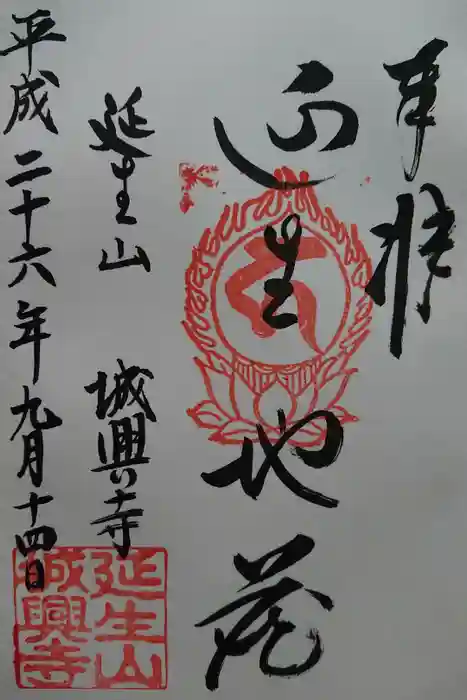 奉拝
延生地蔵
延生山 城興寺
平成二十六年九月十四日
延生山
城興寺